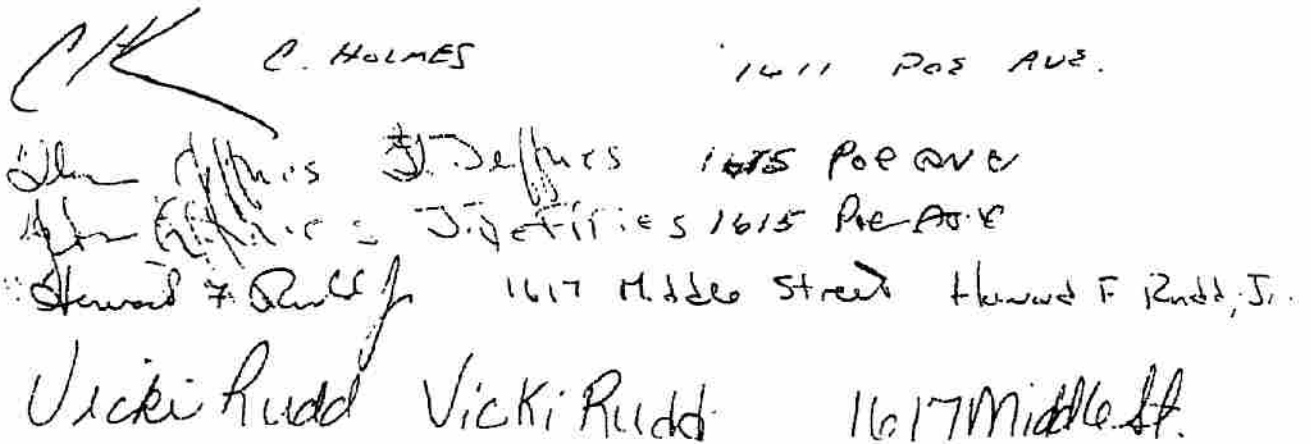 C. HOLMES 1611 POE AVE.
Jeffries J. Jeffries 1615 POE AVE
J. Jeffries 1615 Poe Ave
Howard F. Rudd Jr 1617 Middle Street Howard F Rudd, Jr.
Vicki Rudd Vicki Rudd 1617 Middle St.